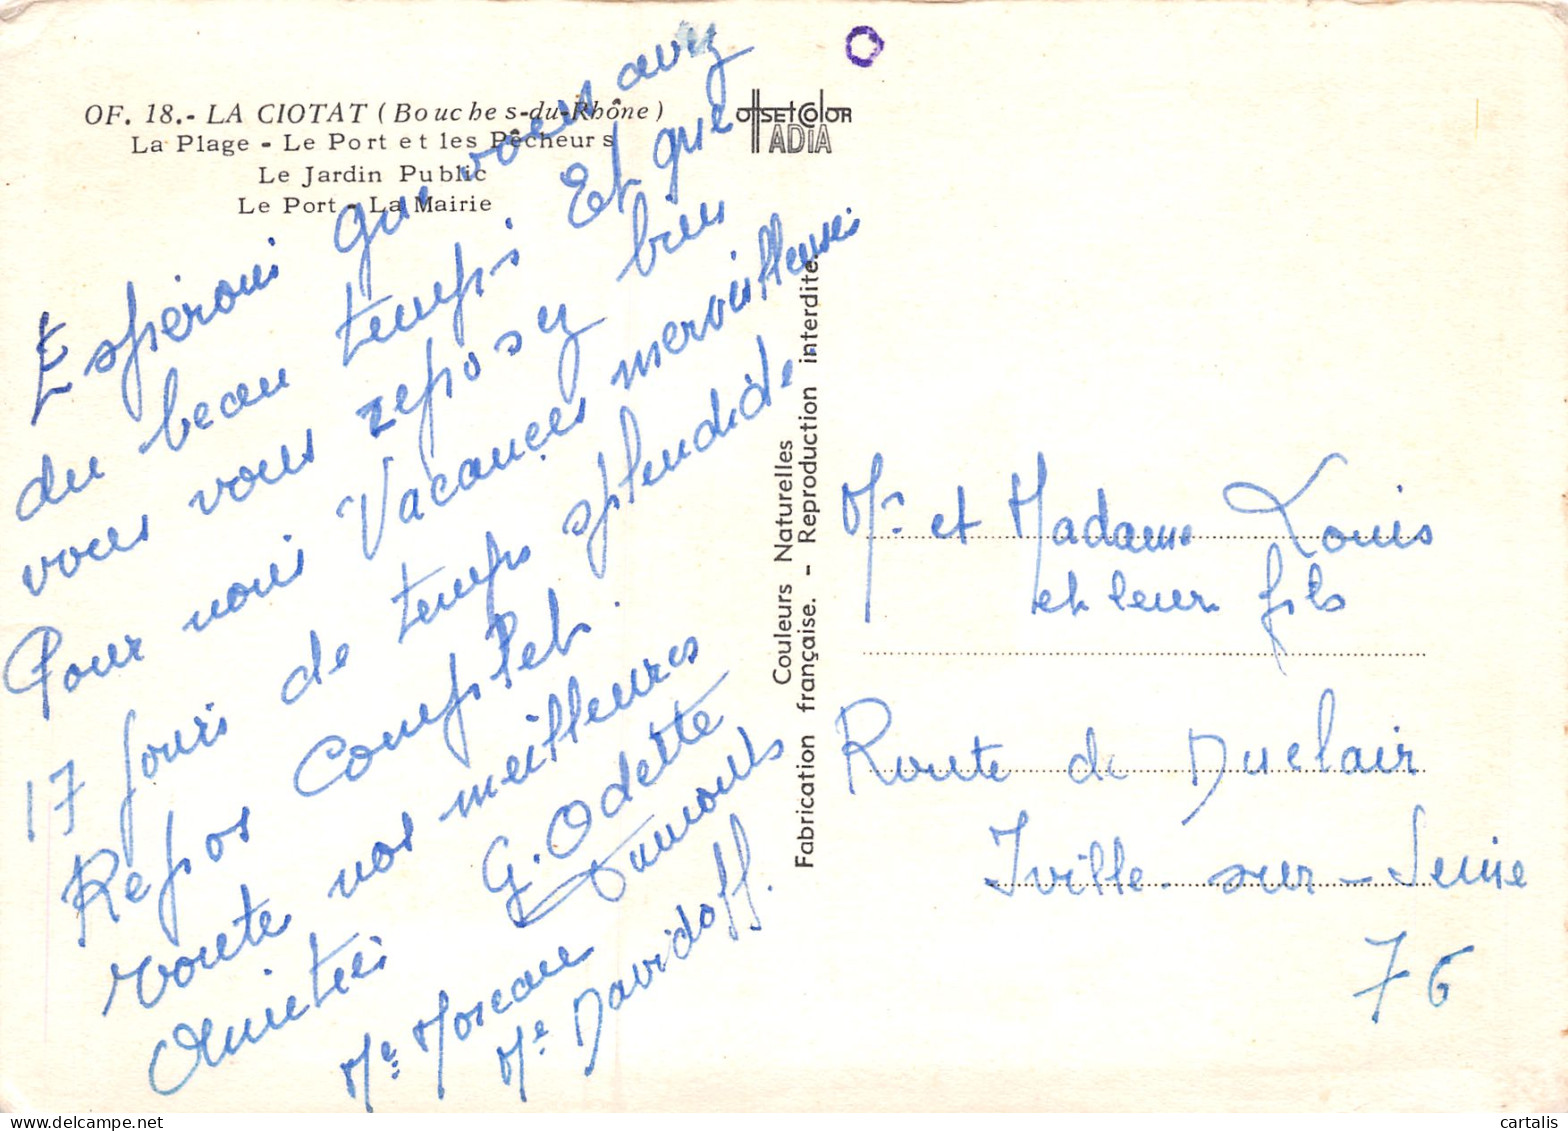 OF. 18.- LA CIOTAT (Bouches-du-Rhône)
La Plage - Le Port et les Pêcheurs
Le Jardin Public
Le Port - La Mairie
OFFSET COLOR
TADIA
Espérons que vous avez
du beau temps Et que
vous vous reposez bien
Pour nous Vacances merveilleuses
17 jours de temps splendide.
Repos Complet.
toute nos meilleures
Amitiés G. Odette
Dumonts
Me Moreau
Me Davidoff.
Couleurs Naturelles
Fabrication française. - Reproduction interdite.
Mr et Madame Louis
et leur fils
Route de Duclair
Yville-sur-Seine
76
cartalis